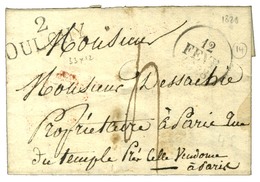 1831
2
OULCHY
23x12
12
FEVR
Monsieur
Monsieur Dessache
Propriétaire à Paris Rue
du temple Près Celle Vendome
à Paris